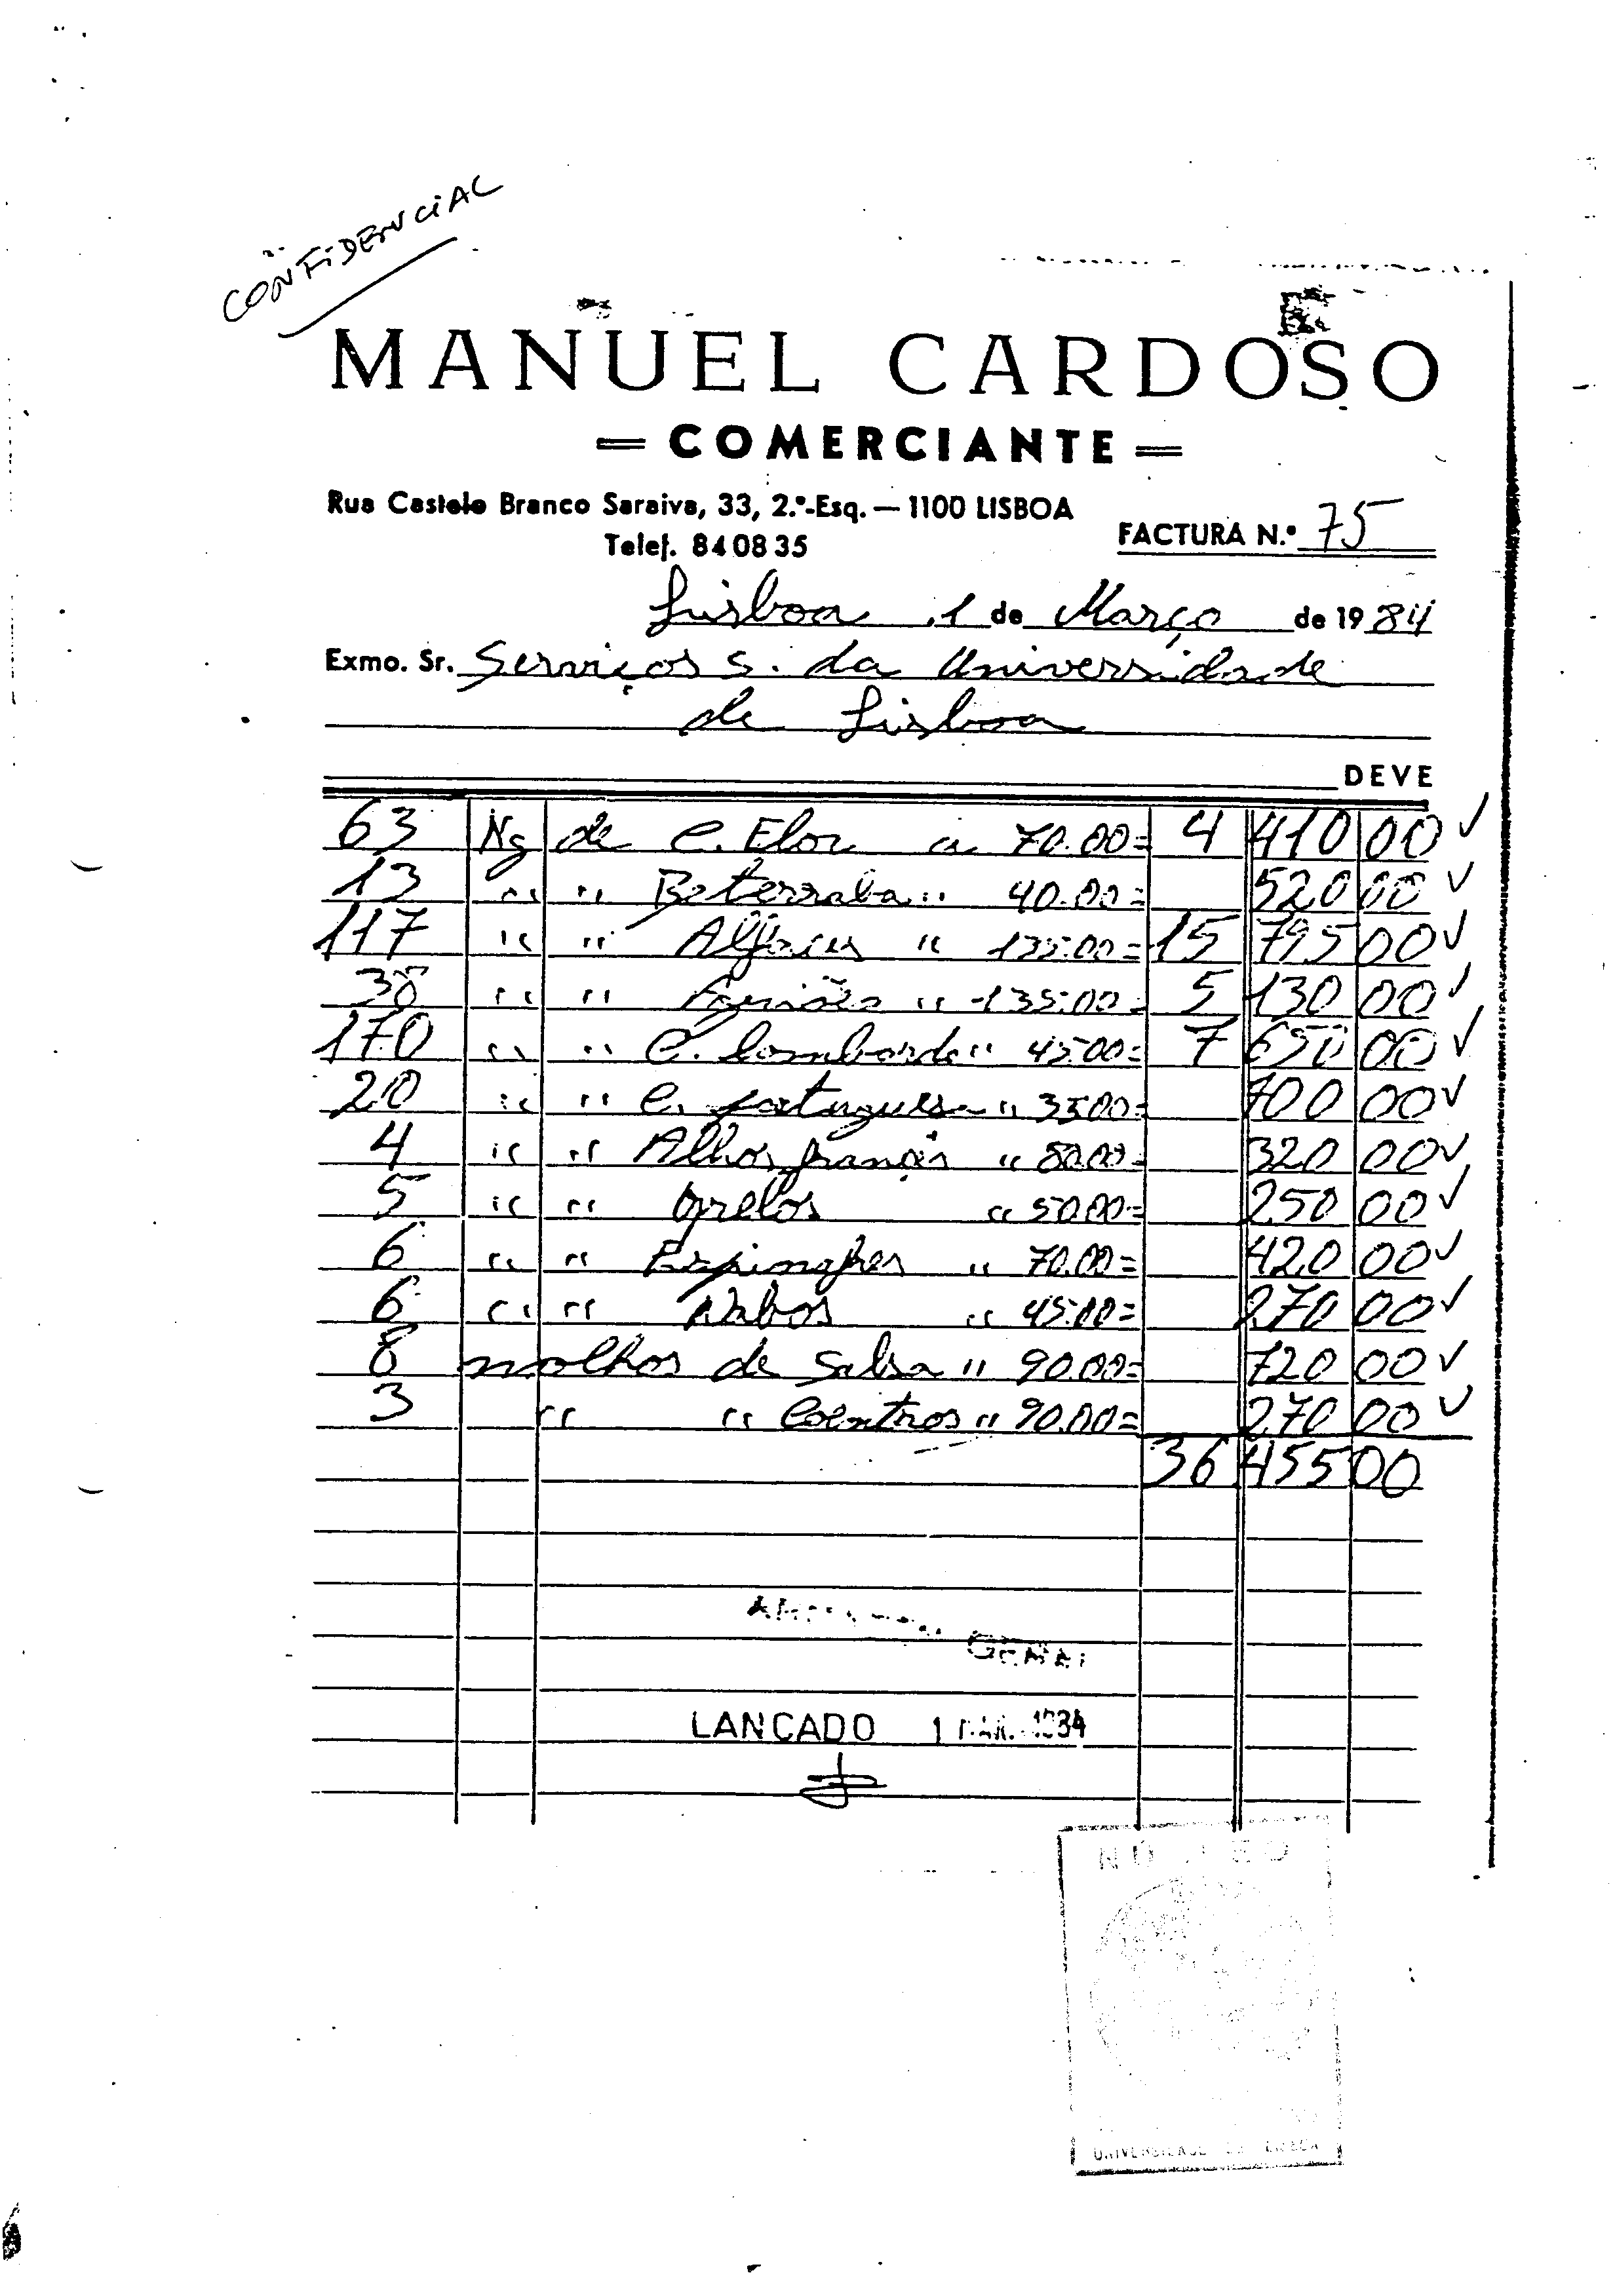 CONFIDENCIAL
MANUEL CARDOSO
= COMERCIANTE =
Rua Castelo Branco Saraiva, 33, 2.º-Esq. — 1100 LISBOA
Telef. 84 08 35
FACTURA N.º 75
Lisboa, 1 de Março de 1984
Exmo. Sr. Serviços S. da Universidade
de Lisboa
DEVE
63 Kg de C. Flor a 70.00= 4 410 00 ✓
13 " " Beterraba " 40.00= 520 00 ✓
117 " " Alfaces " 135.00= 15 795 00 ✓
38 " " Agriões " 135.00= 5 130 00 ✓
170 " " C. Lombarda " 45.00= 7 650 00 ✓
20 " " C. portuguesa " 35.00= 700 00 ✓
4 " " Alhos francês " 80.00= 320 00 ✓
5 " " Grelos " 50.00= 250 00 ✓
6 " " Espinafres " 70.00= 420 00 ✓
6 " " Nabos " 45.00= 270 00 ✓
8 molhos de Salsa " 90.00= 720 00 ✓
3 " " Coentros " 90.00= 270 00 ✓
36 455 00
LANCADO 1 MAR. 1984